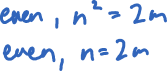 even, n² = 2m
even, n = 2m